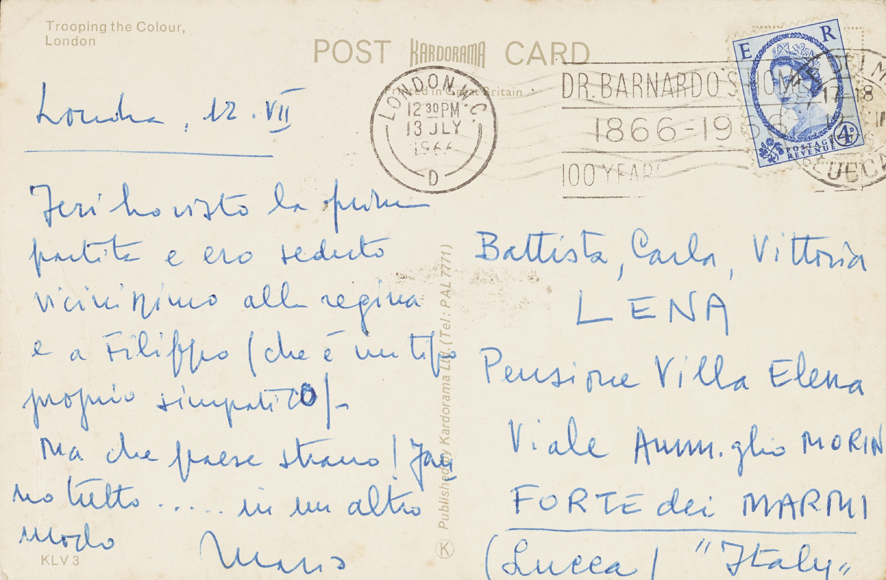 Trooping the Colour,
London
POST KARDORAMA CARD
Printed in Great Britain
LONDON.W.C.
12 30 PM
13 JLY
1966
D
DR.BARNARDO'S HOMES
1866-1966
100 YEARS
E R
POSTAGE
REVENUE
4D
17-18
LUCCA
Londra, 12.VII
Ieri ho visto la prima
partita e ero seduto
vicinissimo alla regina
e a Filippo (che è un tipo
proprio simpatico)-
Ma che paese strano! Fan
no tutto ..... in un altro
modo
Mario
KLV 3
Published by Kardorama Ltd. (Tel: PAL 7771)
K
Battista, Carla, Vittoria
LENA
Pensione Villa Elena
Viale Amm.glio MORIN
FORTE dei MARMI
(Lucca) "Italy"